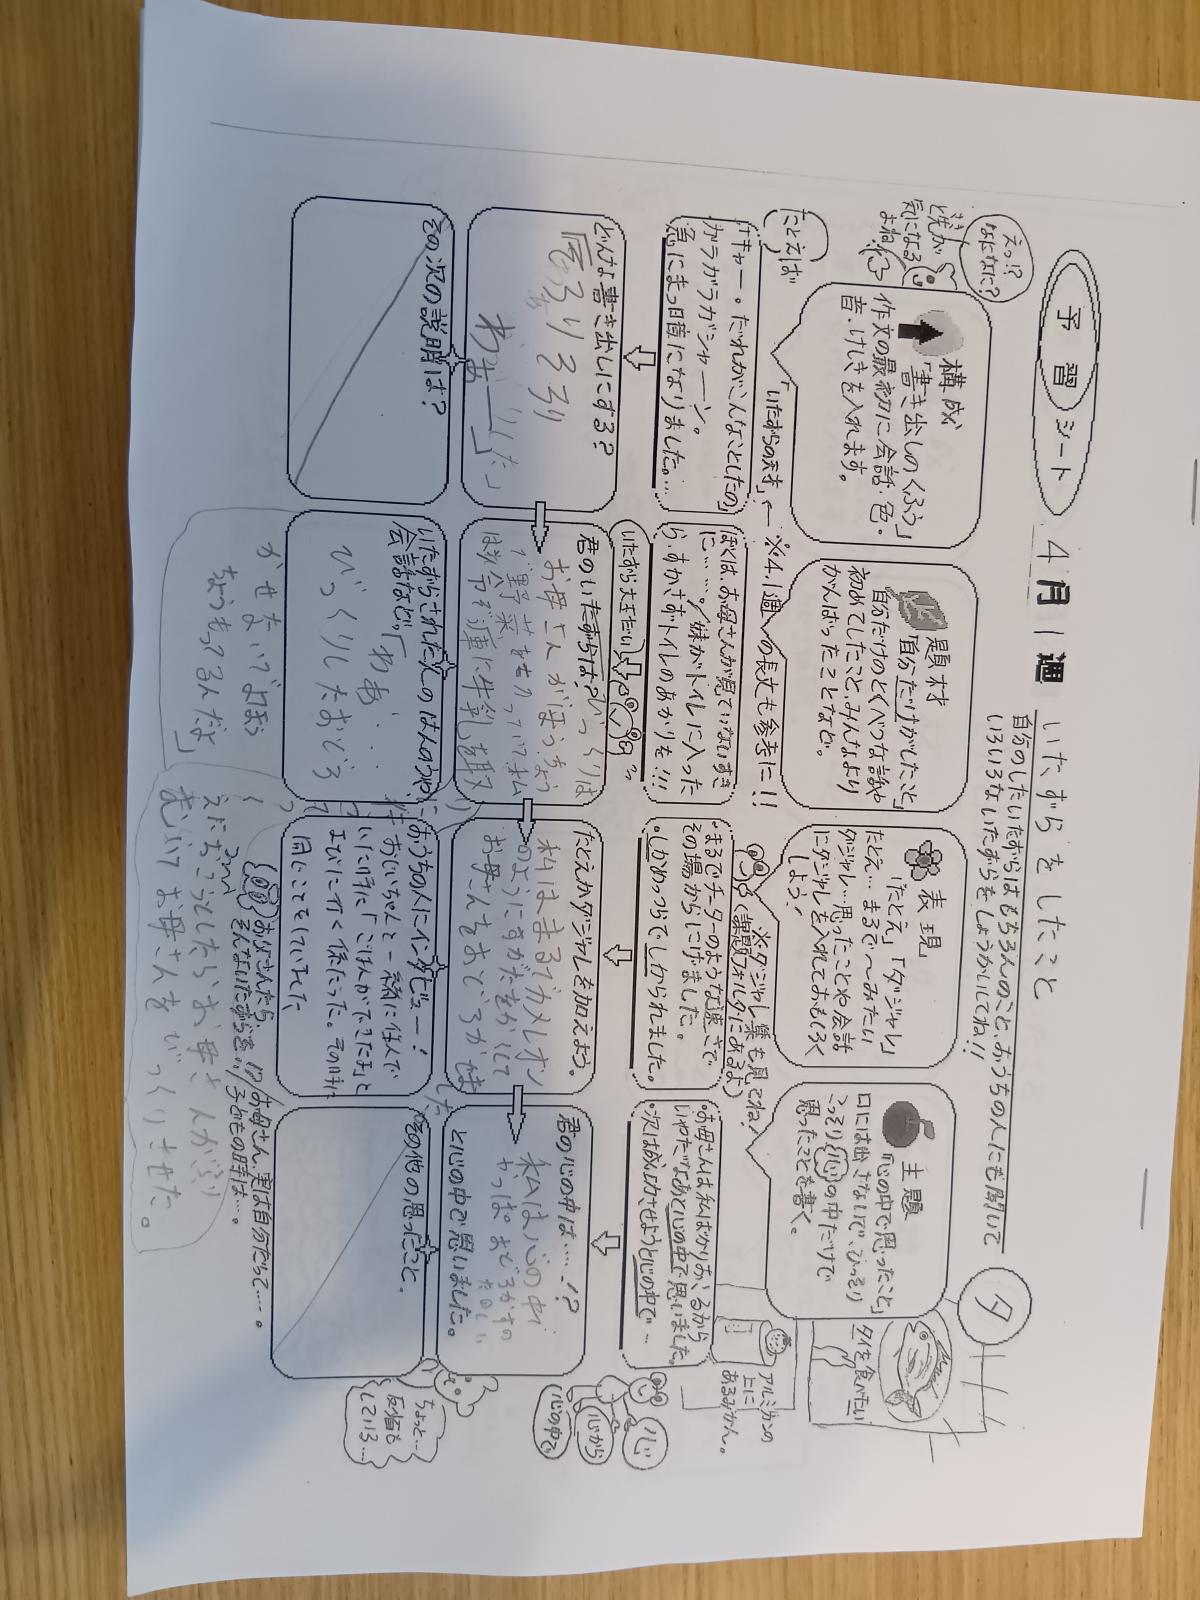 予習シート
4月1週
いたずらをしたこと
自分のしたいたずらはもちろんのこと、おうちの人にも聞いて
いろいろないたずらをしょうかいしてね!!
タ
えっ!?
なになに?
と先が
気になる
よね!
構成
「書き出しのくふう」
作文の最初に会話・色・
音・けしきを入れます。
題材
「自分だけがしたこと」
自分だけのとくべつな話や
初めてしたこと、みんなより
がんばったことなど。
表現
「たとえ」「ダジャレ」
たとえ…まるで〜みたい
ダジャレ…思ったことや会話
にダジャレを入れておもしろく
しよう!
主題
「心の中で思ったこと」
口には出さないで、ひっそり
こっそり心の中だけで
思ったことを書く。
タイを食べたい
たとえば
「いたずらの天才」← ※4.1週の長文も参考に!!
※ダジャレ集も見てね!
(課題フォルダにあるよ)
アルミカンの
上に
あるみかん。
「キャー。だれがこんなことしたの」
ガラガラガシャーン。
急にまっ暗になりました。…
ぼくは、お母さんが見ていないすき
に……。/妹がトイレに入った
らすかさずトイレのあかりを!!!
・まるでチーターのような速さで
その場からにげました。
・しかめっつらでしかられました。
・お母さんは私ばかりおこるから
いやだなあと心の中で思いました。
・次は成功させようと心の中で…
いたずら大王だい
心
心から
心の中で
どんな書き出しにする?
君のいたずらは?
お母さんがほうちょう
で野菜を切っていて私
は冷ぞう庫に牛乳を取
たとえかダジャレを加えよう。
私はまるでカメレオン
のようにすがたをかくして
お母さんをおどろかせ
した
君の心の中は…!?
私は心の中で
やっぱおどろかすの
たのしい
と心の中で思いました。
その次の説明は?
いたずらされた人のはんのうや
会話など。
びっくりしたおどろ
かせないで
ちょうもってるんだよ」
おうちの人にインタビュー!
おじいちゃんと一緒に住んで
いた時に「ごはんができたよ」と
よびに行く係だった。その時に
同じことをしていた
おとうさんたら、
そんないたずらを!?/
お母さん、実は自分だって…。
子どもの時は…。
その他の思ったこと。
ちょっと…
反省も
している…
えにおこうとしたらお母さんが
お母さんをびっくりさせた。